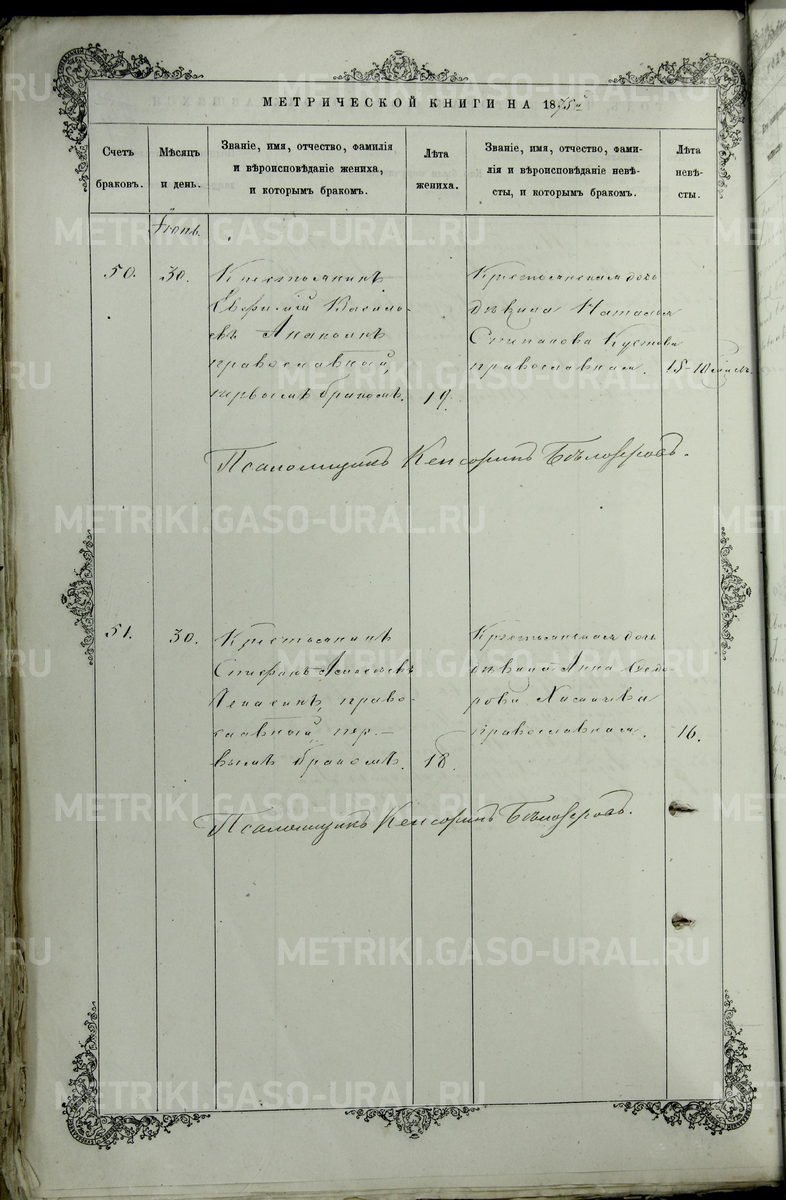 МЕТРИЧЕСКОЙ КНИГИ НА 1875й
Счетъ браковъ.
Мѣсяцъ и день.
Званіе, имя, отчество, фамилія
и вѣроисповѣданіе жениха,
и которымъ бракомъ.
Лѣта жениха.
Званіе, имя, отчество, фами-
лія и вѣроисповѣданіе невѣ-
сты, и которымъ бракомъ.
Лѣта невѣ-
сты.
50.
30.
Крестьянинъ
Евфимій Василь-
евъ
православный,
первымъ бракомъ.
19.
Крестьянская дочь
дѣвица Наталья
Степанова Кустова
православная.
15-10
Псаломщикъ Кенсоринъ Бѣлозеровъ.
51.
30.
Крестьянинъ
Стефанъ
право-
славный, пер-
вымъ бракомъ.
18.
Крестьянская дочь
дѣвица Анна Ѳедо-
рова
православная.
16.
Псаломщикъ Кенсоринъ Бѣлозеровъ.
METRIKI.GASO-URAL.RU